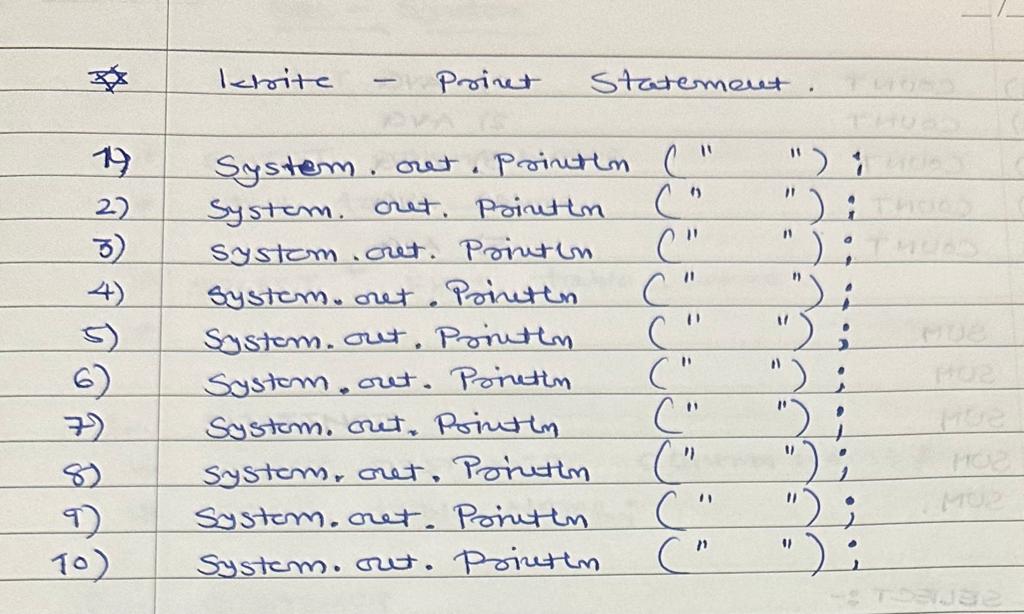 Write - Print Statement.
1) System. out. Println (" ");
2) System. out. Println (" ");
3) System. out. Println (" ");
4) System. out. Println (" ");
5) System. out. Println (" ");
6) System. out. Println (" ");
7) System. out. Println (" ");
8) System. out. Println (" ");
9) System. out. Println (" ");
10) System. out. Println (" ");